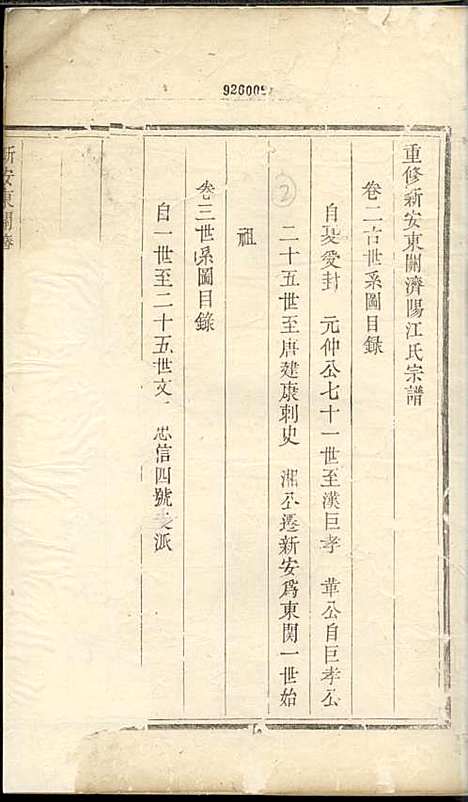 926009
重修新安東關濟陽江氏宗譜
卷二古世系圖目錄
自夏受封 元仲公七十一世至漢巨孝 革公自巨孝公
二十五世至唐建康刺史 湘公遷新安為東関一世始
祖
2
卷三世系圖目錄
自一世至二十五世文 忠信四號 派
新安東關濟